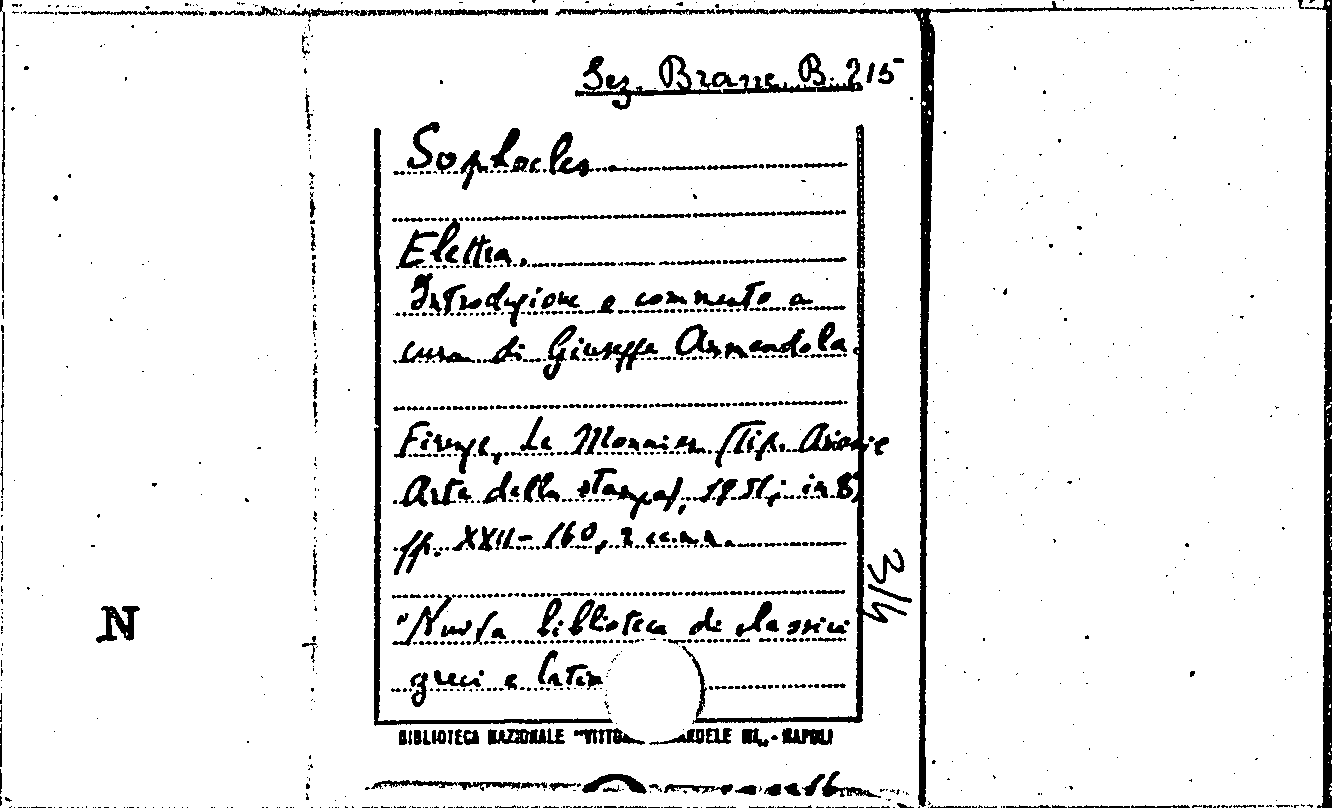 Sez. Branc. B. 215
Sophocles
Elettra.
Introduzione e commento a
cura di Giuseppe Ammendola.
Firenze, Le Monnier (Tip.
Arte della stampa), 1951; in 8,
pp. XXII-160, 2 cc.n.n.
"Nuova biblioteca di classici
greci e latin
3/4
N
BIBLIOTECA NAZIONALE "VITTO ANUELE III„ - NAPOLI